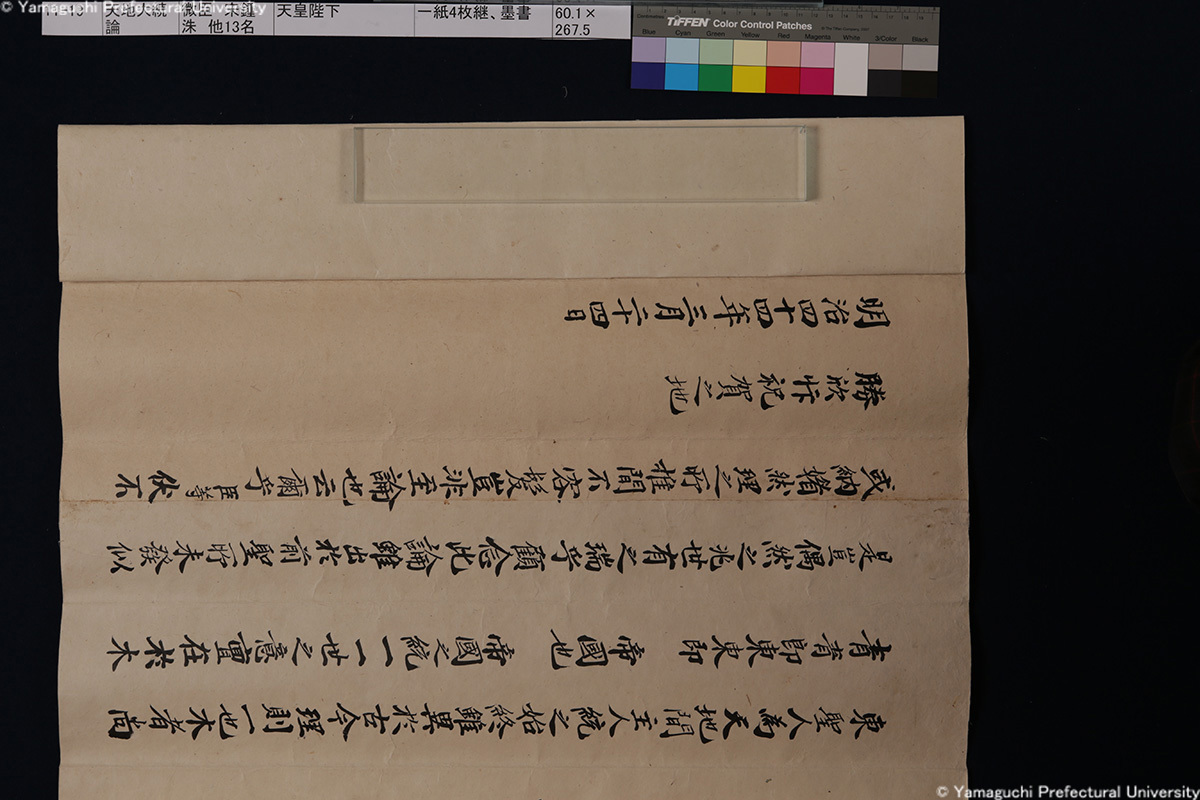 © Yamaguchi Prefectural University
論
洙 他13名
天皇陛下
一紙4枚継、墨書
60.1×
267.5
TIFFEN Color Control Patches
Blue Cyan Green Yellow Red Magenta White 3/Color Black
東聖人為天地間主人統之始終雖異於古今理則一也木者尚
青青即東東即 帝國也 帝國之統一一世之意亶在於木
是豈偶然之兆世有之瑞乎顧念此論雖出於前聖所未發似
或納牖然理之所推間不容髮豈非至論也云爾乎臣等伏不
勝欣忭祝賀之地
明治四十四年三月二十四日
© Yamaguchi Prefectural University